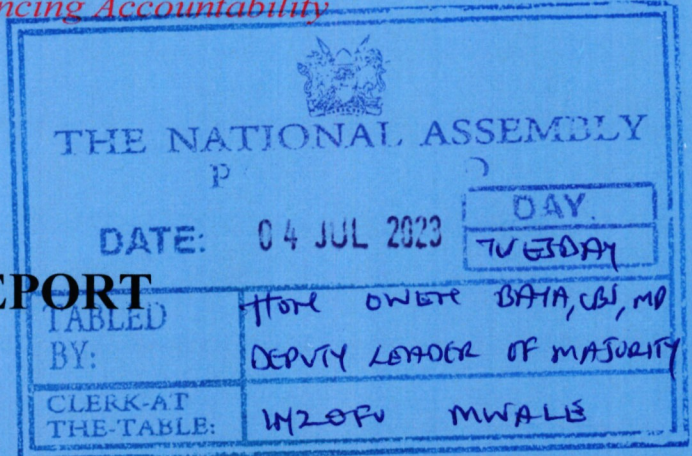 ncing Accountability
THE NATIONAL ASSEMBLY
P
DATE: 04 JUL 2023
DAY.
TUESDAY
EPORT
TABLED
BY:
HON OWEN BAYA, CBS, MP
DEPUTY LEADER OF MAJORITY
CLERK-AT
THE-TABLE:
MWALE